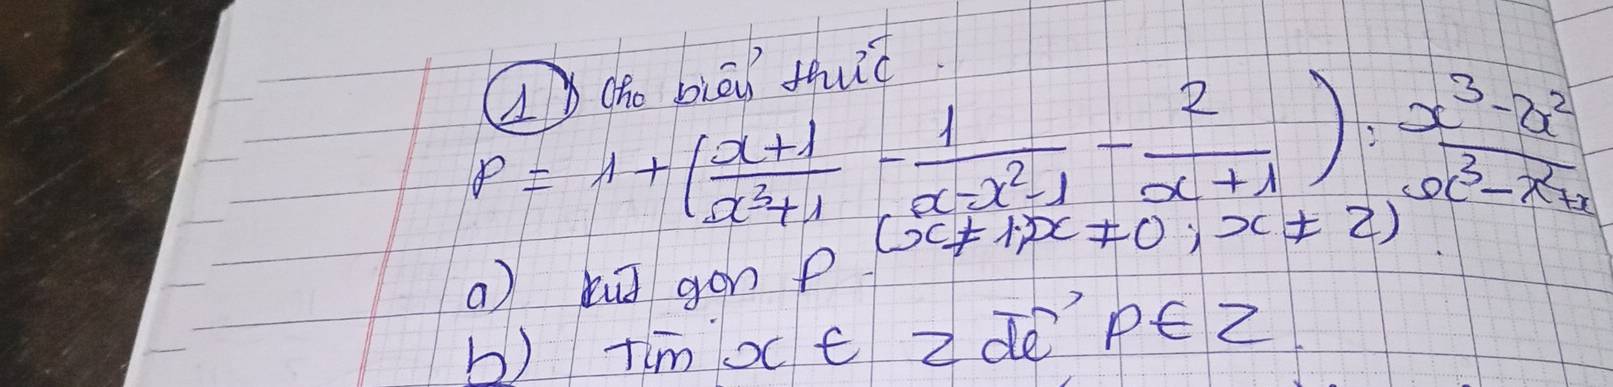 1) Cho biểu thức.
P = 1 + ( (x+1)/(x³+1) - 1/(x-x²-1) - 2/(x+1) ) : (x³-2x²)/(x³-x²+x)
(x ≠ 1; x ≠ 0; x ≠ 2)
a) rút gọn P.
b) Tìm x ∈ Z để P ∈ Z.